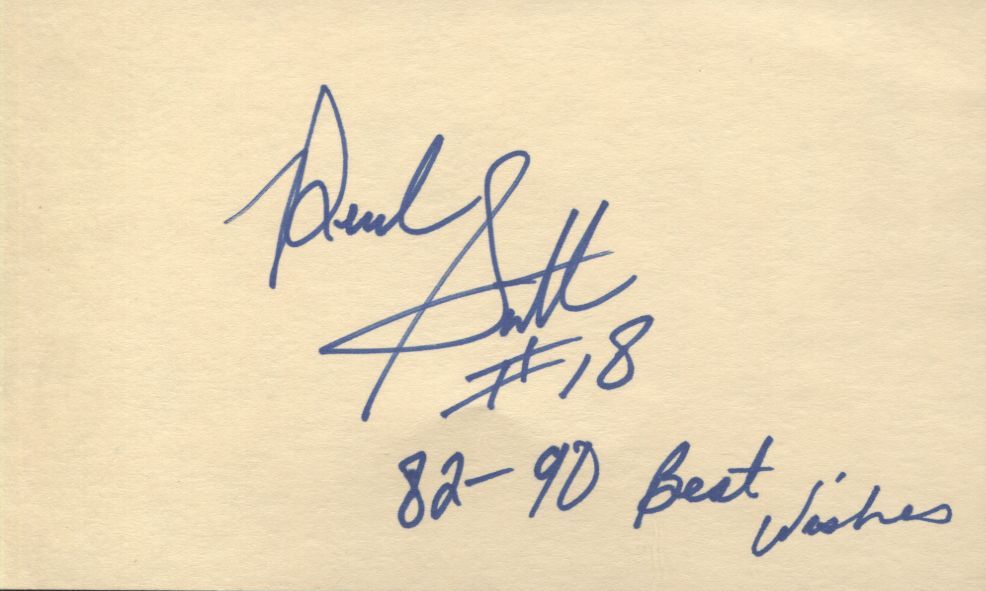 Derek
Smith
#18
82-90 Best Wishes